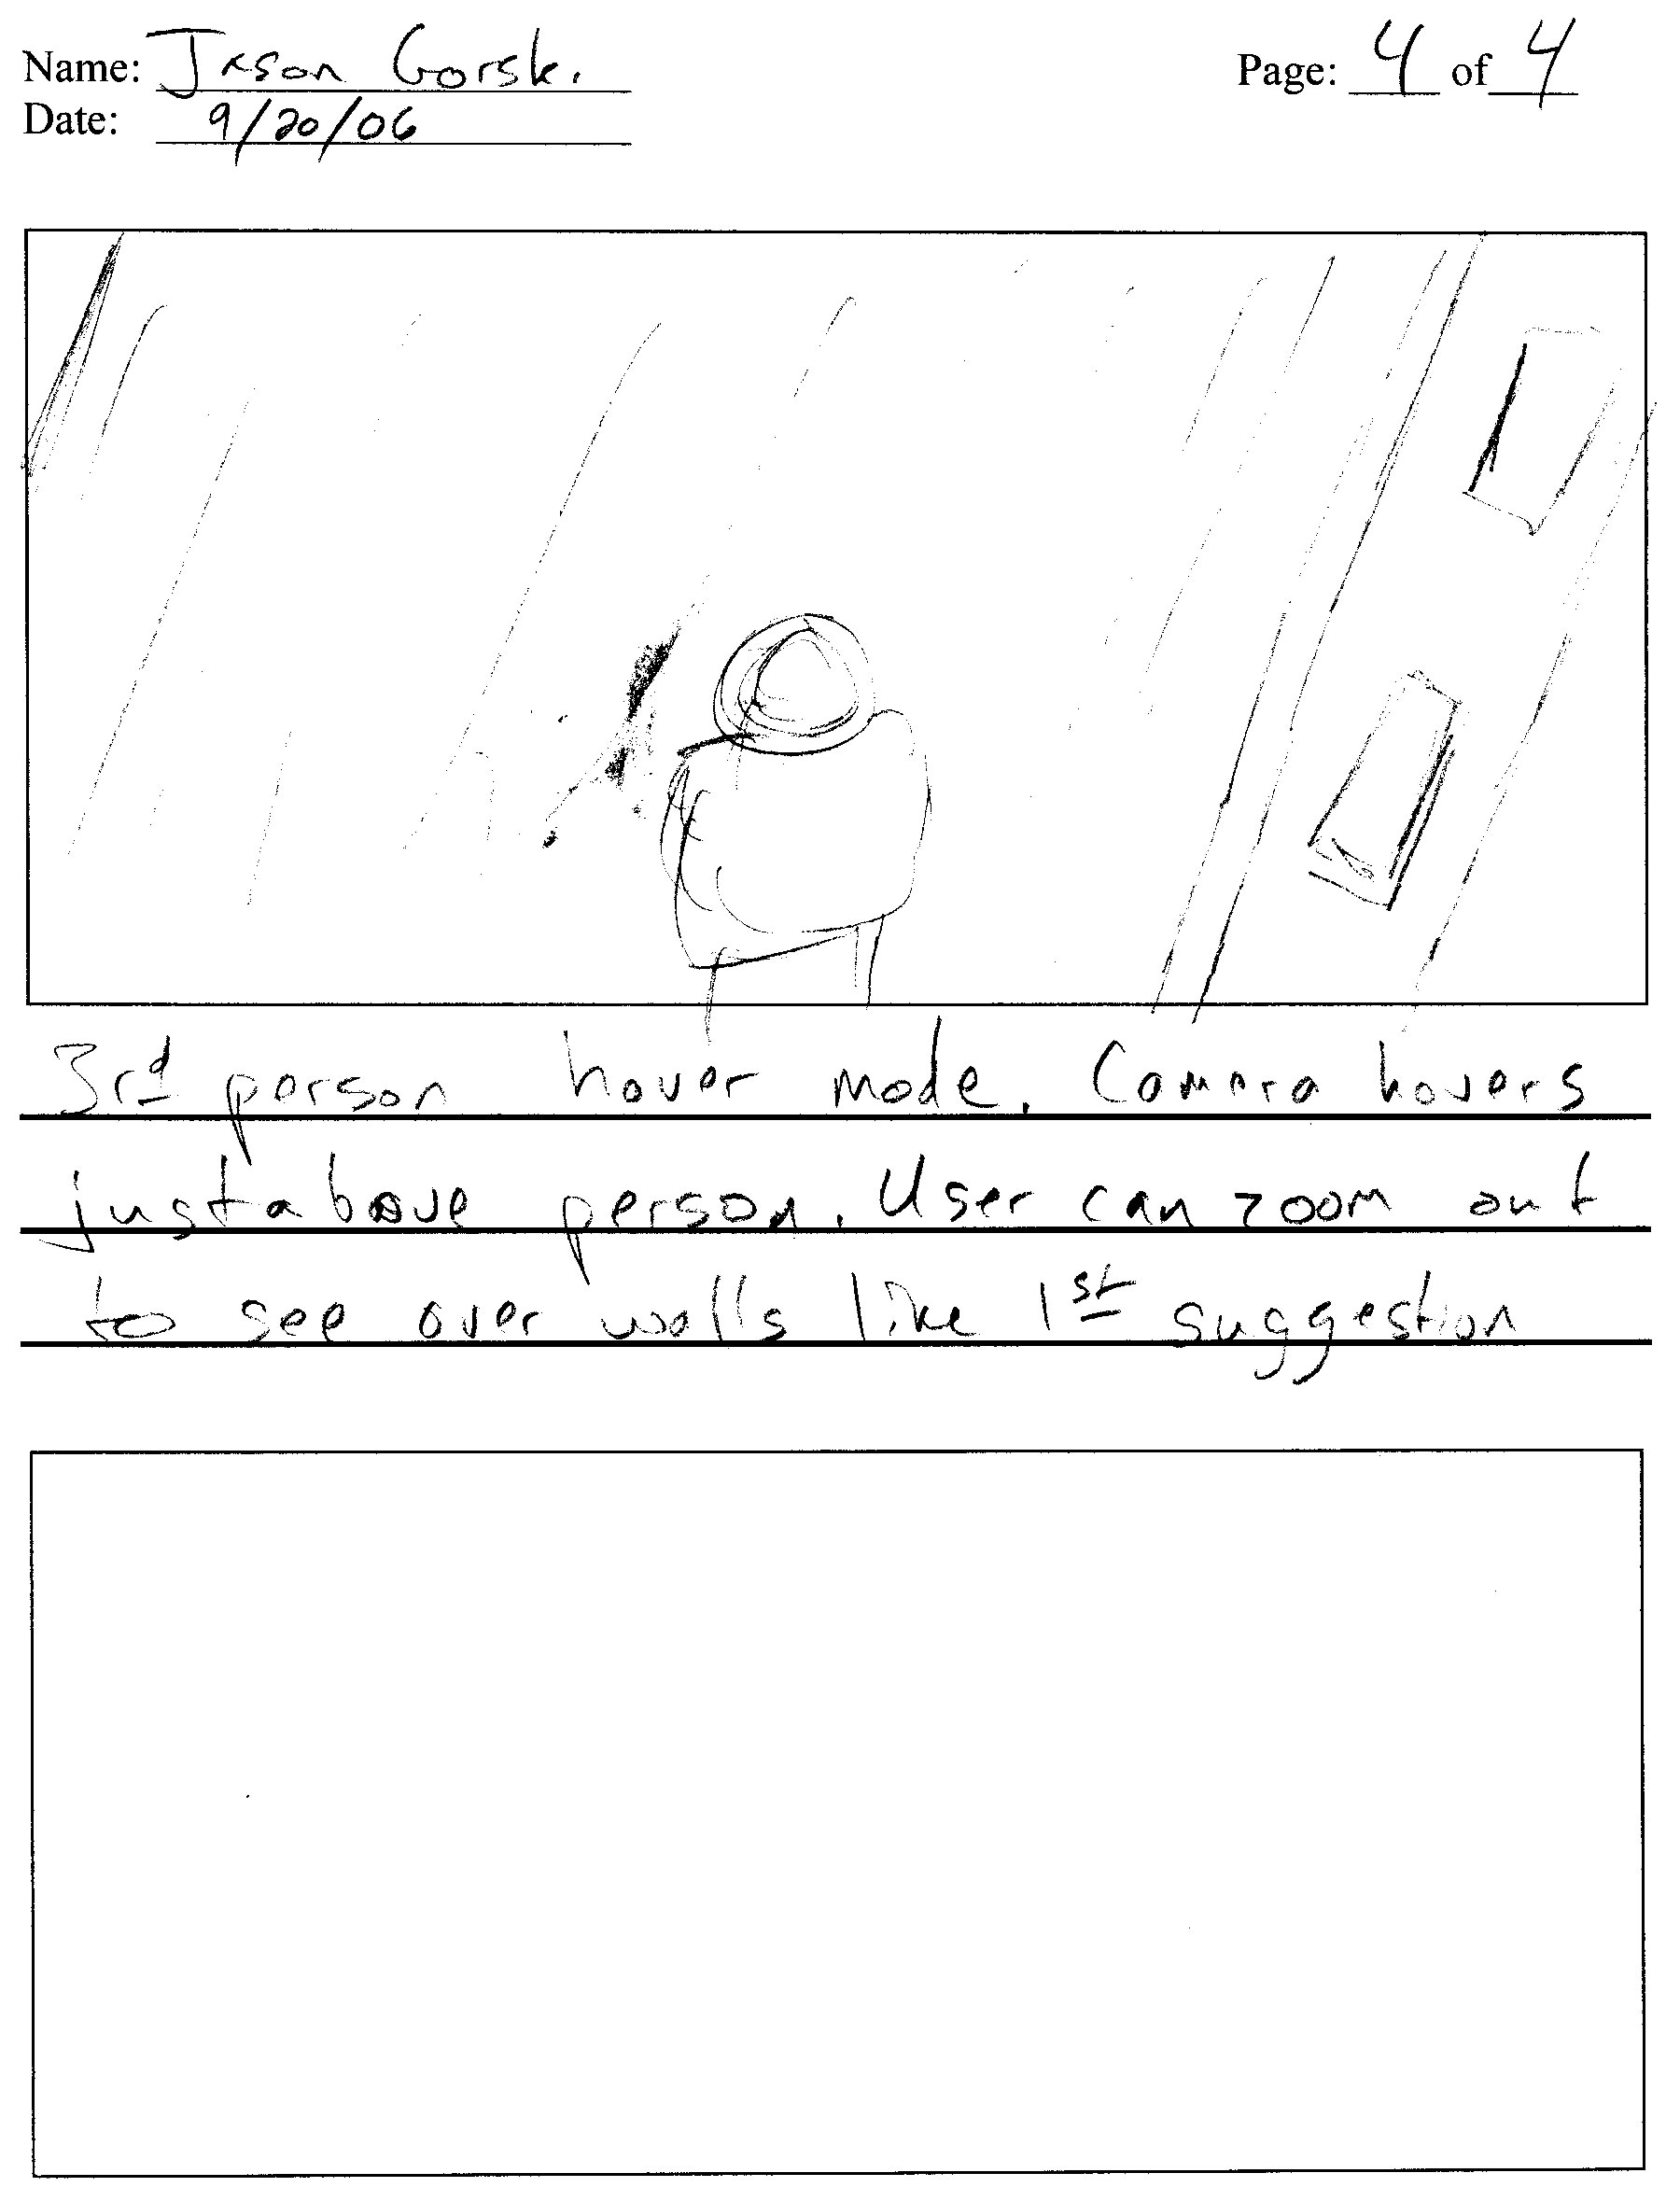 Name: Jason Gorski
Page: 4 of 4
Date: 9/20/06
3rd person hover mode. Camera hovers
just above person. User can zoom out
to see over walls like 1st suggestion